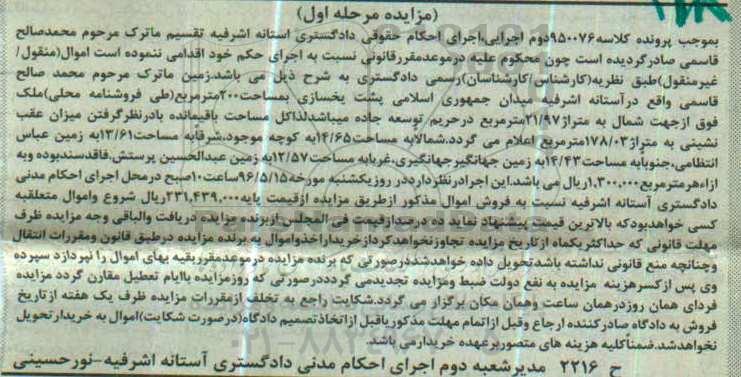 (مزایده مرحله اول)
بموجب پرونده کلاسه۹۵۰۰۷۶دوم اجرایی،اجرای احکام حقوقی دادگستری آستانه اشرفیه تقسیم ماترک مرحوم محمدصالح
قاسمی صادرگردیده است چون محکوم علیه درموعدمقررقانونی نسبت به اجرای حکم خود اقدامی ننموده است اموال(منقول/
غیرمنقول)طبق نظریه(کارشناس/کارشناسان)رسمی دادگستری به شرح ذیل می باشد.زمین ماترک مرحوم محمد صالح
قاسمی واقع درآستانه اشرفیه میدان جمهوری اسلامی پشت یخسازی بمساحت۲۰۰مترمربع(طی فروشنامه محلی)ملک
فوق ازجهت شمال به متراژ۲۱/۹۷مترمربع درحریم توسعه جاده میباشدلذاکل مساحت باقیمانده بادرنظرگرفتن میزان عقب
نشینی به متراژ۱۷۸/۰۳مترمربع اعلام می گردد.شمالاًبه مساحت۱۴/۶۵به کوچه موجود،شرقابه مساحت۱۳/۶۱به زمین عباس
انتظامی،جنوبابه مساحت۱۴/۴۳به زمین جهانگیرجهانگیری،غربابه مساحت۱۲/۵۷به زمین عبدالحسین پرستش،فاقدسندبوده وبه
ازاءهرمترمربع۱،۳۰۰،۰۰۰ریال می باشد.این اجرادرنظرداردتدر روزیکشنبه مورخه۹۶/۵/۱۵ساعت۱۰صبح درمحل اجرای احکام مدنی
دادگستری آستانه اشرفیه نسبت به فروش اموال مذکور ازطریق مزایده ازقیمت پایه۲۳۱،۴۳۹،۰۰۰ریال شروع واموال متعلقبه
کسی خواهدبودکه بالاترین قیمت پیشنهاد نماید.ده درصدازقیمت فی المجلس ازبرنده مزایده دریافت والباقی وجه مزایده ظرف
مهلت قانونی که حداکثریکماه ازتاریخ مزایده تجاوزنخواهدکردازخریداراخذواموال به برنده مزایده درطبق قانون ومقررات انتقال
وچنانچه منع قانونی نداشته باشدتحویل داده خواهدشد.درصورتی که برنده مزایده درموعدمقرربقیه بهای اموال را نپردازد سپرده
وی پس ازکسرهزینه مزایده به نفع دولت ضبط ومزایده تجدیدمی گردد.درصورتی که روزمزایده باایام تعطیل مقارن گردد مزایده
فردای همان روزدرهمان ساعت وهمان مکان برگزار می گردد.شکایت راجع به تخلف ازمقررات مزایده ظرف یک هفته ازتاریخ
فروش به دادگاه صادرکننده ارجاع وقبل ازاتمام مهلت مذکوریاقبل ازاتخاذتصمیم دادگاه(درصورت شکایت)اموال به خریدارتحویل
نخواهدشد.ضمناًکلیه هزینه های متصوربرعهده خریدارمی باشد.
ح ۲۲۱۶ مدیرشعبه دوم اجرای احکام مدنی دادگستری آستانه اشرفیه-نورحسینی